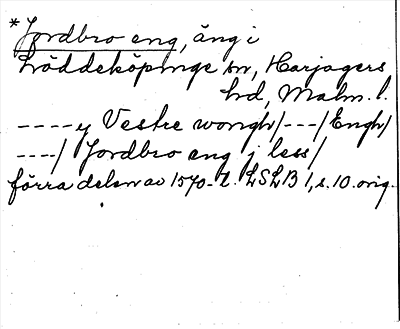 *Jordbro eng, äng i
Löddeköpinge sn, Harjagers
hd, Malm. l.
----y Vestre wongh/---/Engh/
----/ Jordbro eng j less/
förra delen av 1570-t. LSLB 1, s. 10. orig.